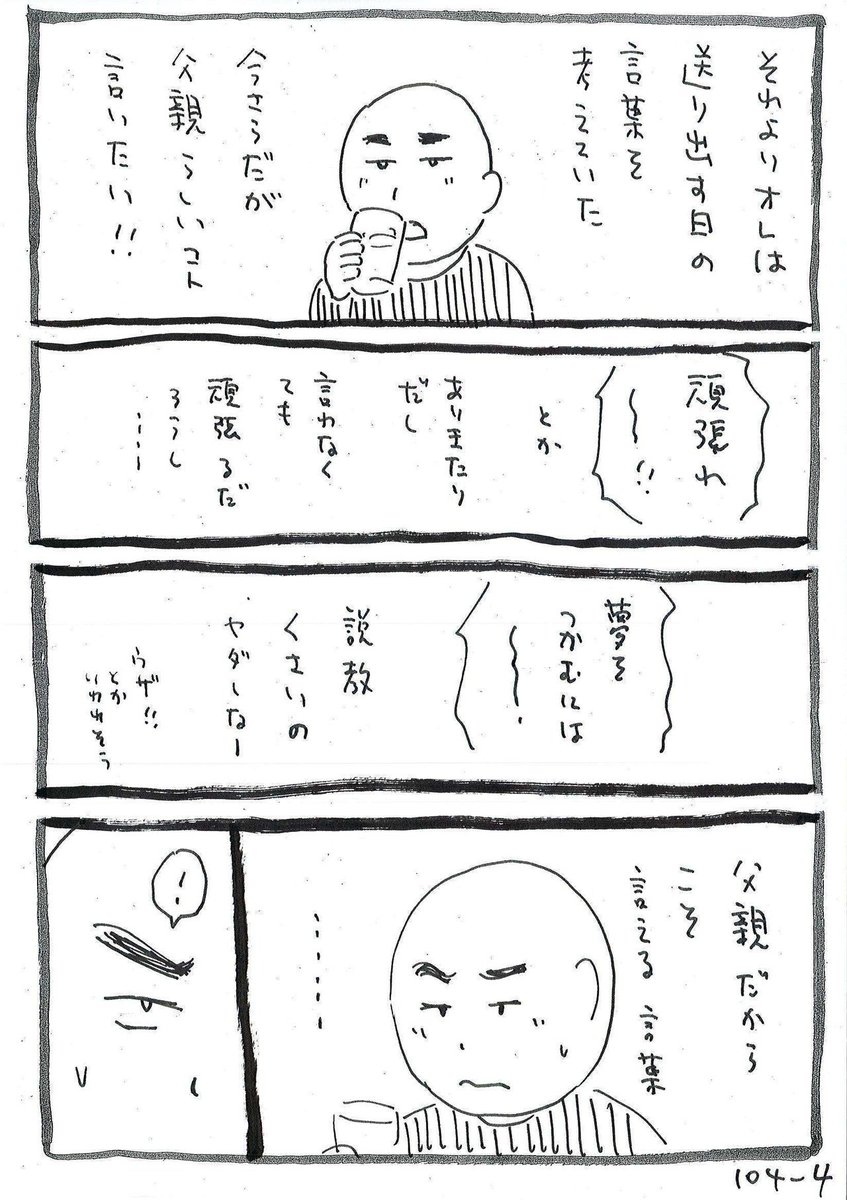 それよりオレは
送り出す日の
言葉を
考えていた
今さらだが
父親らしいコト
言いたい!!
頑張れ
〜!!
とか
ありきたり
だし
言わなく
ても
頑張るだ
ろうし
……
夢を
つかむには
〜〜.
説教
くさいの
ヤダしなー
ウザ!!
とか
いわれそう
父親だから
こそ
言える言葉
……
!
104-4